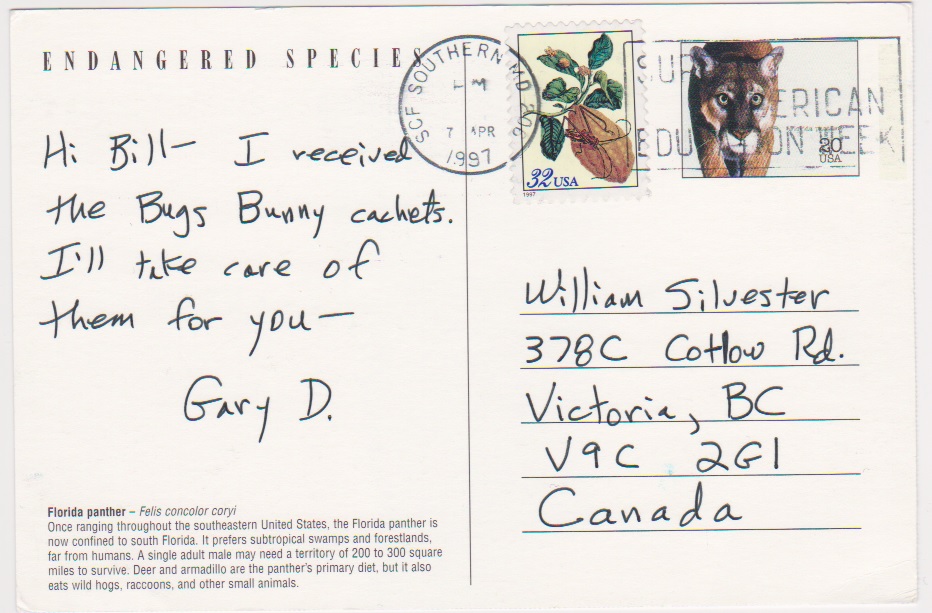 ENDANGERED SPECIES
SCF SOUTHERN MD
PM
7 APR
1997
32 USA
1997
20
USA
Hi Bill— I received
the Bugs Bunny cachets.
I'll take care of
them for you—
Gary D.
William Silvester
378C Cotlow Rd.
Victoria, BC
V9C 2G1
Canada
Florida panther – Felis concolor coryi
Once ranging throughout the southeastern United States, the Florida panther is
now confined to south Florida. It prefers subtropical swamps and forestlands,
far from humans. A single adult male may need a territory of 200 to 300 square
miles to survive. Deer and armadillo are the panther's primary diet, but it also
eats wild hogs, raccoons, and other small animals.